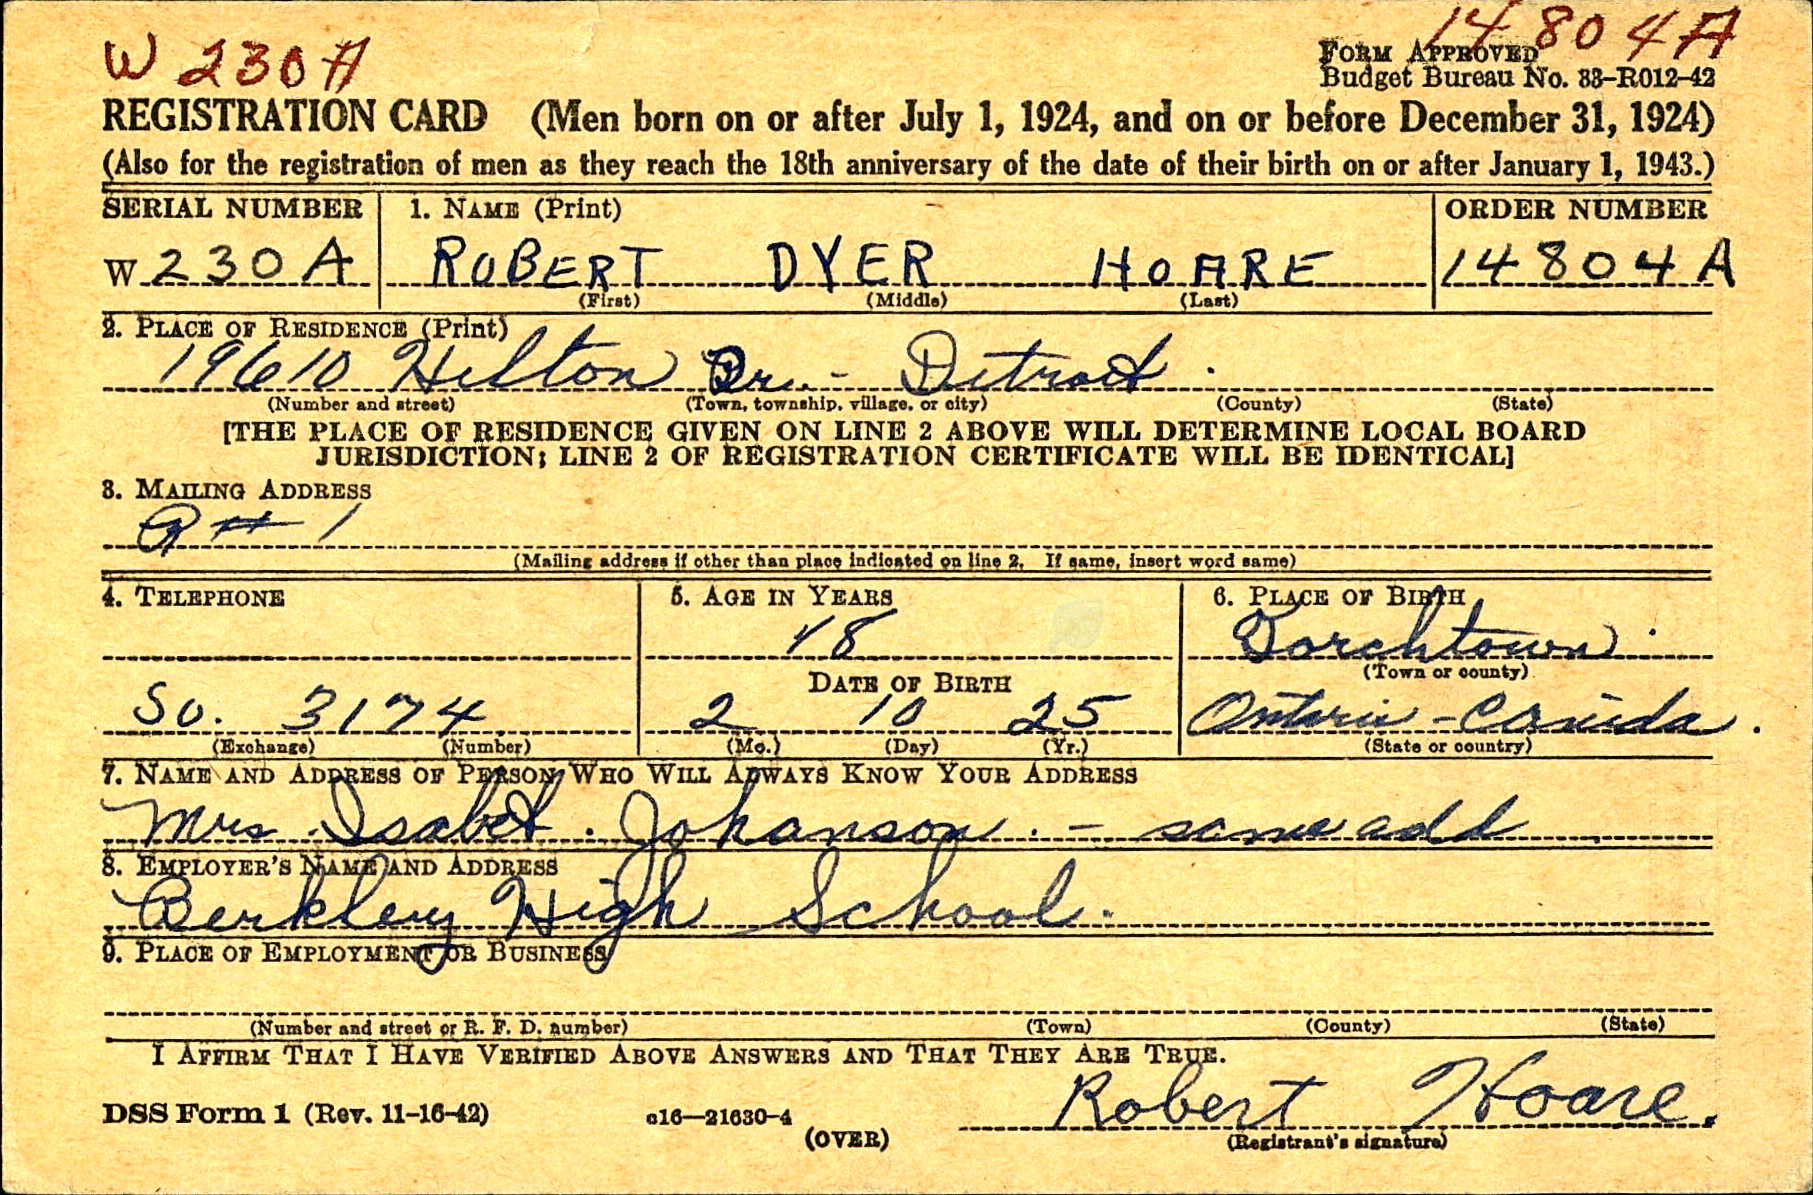 W 230A 14804A
FORM APPROVED
Budget Bureau No. 33-R012-42
REGISTRATION CARD (Men born on or after July 1, 1924, and on or before December 31, 1924)
(Also for the registration of men as they reach the 18th anniversary of the date of their birth on or after January 1, 1943.)
SERIAL NUMBER 1. NAME (Print) ORDER NUMBER
W 230A ROBERT DYER HOARE 14804A
(First) (Middle) (Last)
2. PLACE OF RESIDENCE (Print)
19610 Hilton Dr. - Detroit.
(Number and street) (Town, township, village, or city) (County) (State)
[THE PLACE OF RESIDENCE GIVEN ON LINE 2 ABOVE WILL DETERMINE LOCAL BOARD
JURISDICTION; LINE 2 OF REGISTRATION CERTIFICATE WILL BE IDENTICAL]
3. MAILING ADDRESS
R # 1
(Mailing address if other than place indicated on line 2. If same, insert word same)
4. TELEPHONE 5. AGE IN YEARS 6. PLACE OF BIRTH
18 Dorchtown.
DATE OF BIRTH (Town or county)
So. 3174 2 10 25 Ontario - Canada.
(Exchange) (Number) (Mo.) (Day) (Yr.) (State or country)
7. NAME AND ADDRESS OF PERSON WHO WILL ALWAYS KNOW YOUR ADDRESS
Mrs. Isabel. Johanson. - same add
8. EMPLOYER'S NAME AND ADDRESS
Berkley High School.
9. PLACE OF EMPLOYMENT OR BUSINESS
(Number and street or R. F. D. number) (Town) (County) (State)
I AFFIRM THAT I HAVE VERIFIED ABOVE ANSWERS AND THAT THEY ARE TRUE.
Robert Hoare.
DSS Form 1 (Rev. 11-16-42) c16—21630-4
(OVER) (Registrant's signature)